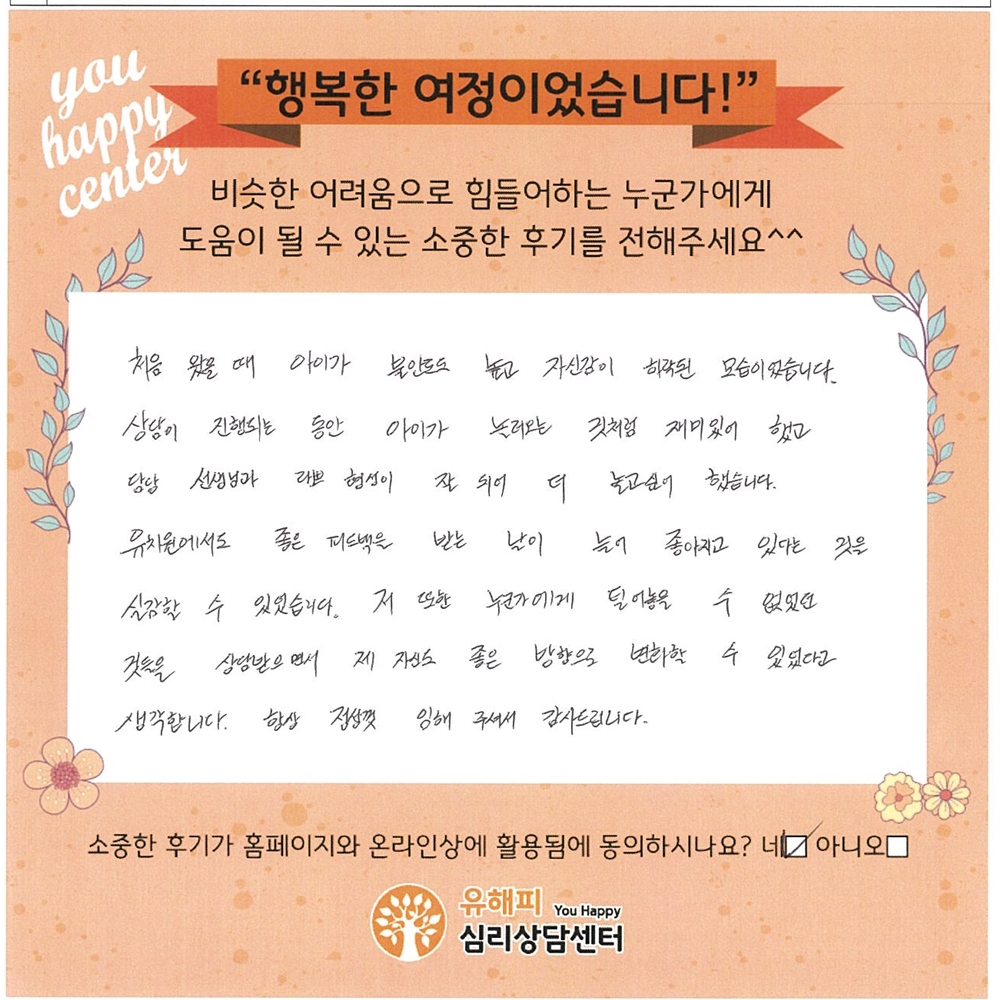 you
happy
center
“행복한 여정이었습니다!”
비슷한 어려움으로 힘들어하는 누군가에게
도움이 될 수 있는 소중한 후기를 전해주세요^^
처음 왔을 때 아이가 불안도도 높고 자신감이 하락된 모습이었습니다.
상담이 진행되는 동안 아이가 놀러오는 것처럼 재미있어 했고
담당 선생님과 라포 형성이 잘 되어 더 놀고싶어 했습니다.
유치원에서도 좋은 피드백을 받는 날이 늘어 좋아지고 있다는 것을
실감할 수 있었습니다. 저 또한 누군가에게 털어놓을 수 없었던
것들을 상담받으면서 제 자신도 좋은 방향으로 변화할 수 있었다고
생각합니다. 항상 정성껏 임해 주셔서 감사드립니다.
소중한 후기가 홈페이지와 온라인상에 활용됨에 동의하시나요? 네☑ 아니오☐
유해피 You Happy
심리상담센터